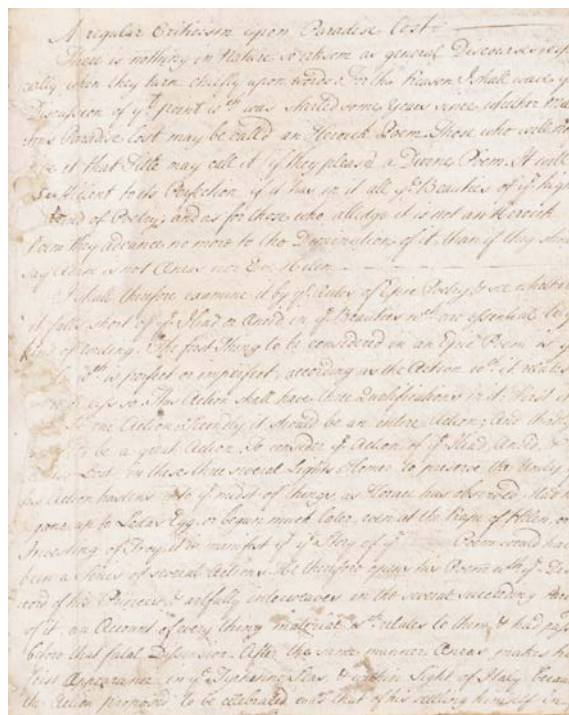 A regular Criticism upon Paradise Lost
There is nothing in Nature so irksom as general Discourses
cially when they turn chiefly upon words. For this Reason I shall wave
Discussion of yt. point wch. was started some Years since, whether
tons Paradise Lost may be called an Heroick Poem. Those who will not
it that Title may call it if they please a Divine Poem. It will
Sufficient to its Perfection if it has in it all ye. Beauties of ye. high
kind of Poetry, and as for those who alledge it is not an Heroick
Poem they advance no more to the Diminution of it than if they should
say Adam is not Aneas nor Eve Helen
I shall therefore examine it by ye. Rules of Epic Poetry & see whether
it falls short of ye. Iliad or Aneid in ye. Beauties wch. are essential to
kind of The first thing to be considered in an Epic Poem is
wch. is perfect or imperfect, according as the Action wch. it relates
is so. This Action shall have three Qualifications in it. First it
be one Action; Secondly it should be an entire Action; And
be a great Action. To consider ye. Action of ye. Iliad Aneid, &
Lost in these three several Lights. Homer to preserve the Unity
his Action hastens into ye. midst of things, as Horace has observed. Had
gone up to Ledas Egg, or begun much later, even at the Rape of Helen, or
Investing of Troy, it is manifest yt. ye. Story of ye. Poem would have
been a Series of several Actions. He therefore opens his Poem wth. ye.
cord of his Princes, & artfully interweaves in the several succeeding
of it, an Account of every thing material wch. relates to them, & had
before that fatal Dissension. After the same manner Aneas makes
first Appearance in ye. Tyrhenne Seas, & within Sight of Italy, because
the Action proposed to be celebrated was that of his settling himself in